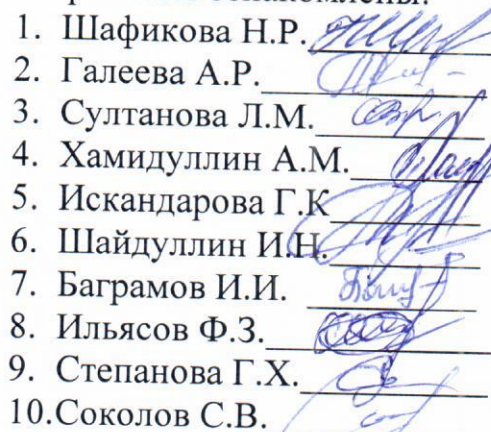 ознакомлены:
1. Шафикова Н.Р.
2. Галеева А.Р.
3. Султанова Л.М.
4. Хамидуллин А.М.
5. Искандарова Г.К
6. Шайдуллин И.Н.
7. Баграмов И.И.
8. Ильясов Ф.З.
9. Степанова Г.Х.
10.Соколов С.В.